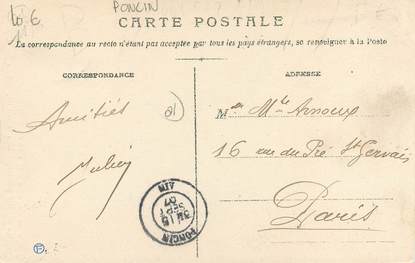 10 €
PONCIN
CARTE POSTALE
La correspondance au recto n'étant pas acceptée par tous les pays étrangers, se renseigner à la Poste
CORRESPONDANCE
ADRESSE
Amitiés
Julien
Mlle Mte Arnoux
16 rue du Pré St Gervais
Paris
PONCIN
SEPT
07
AIN